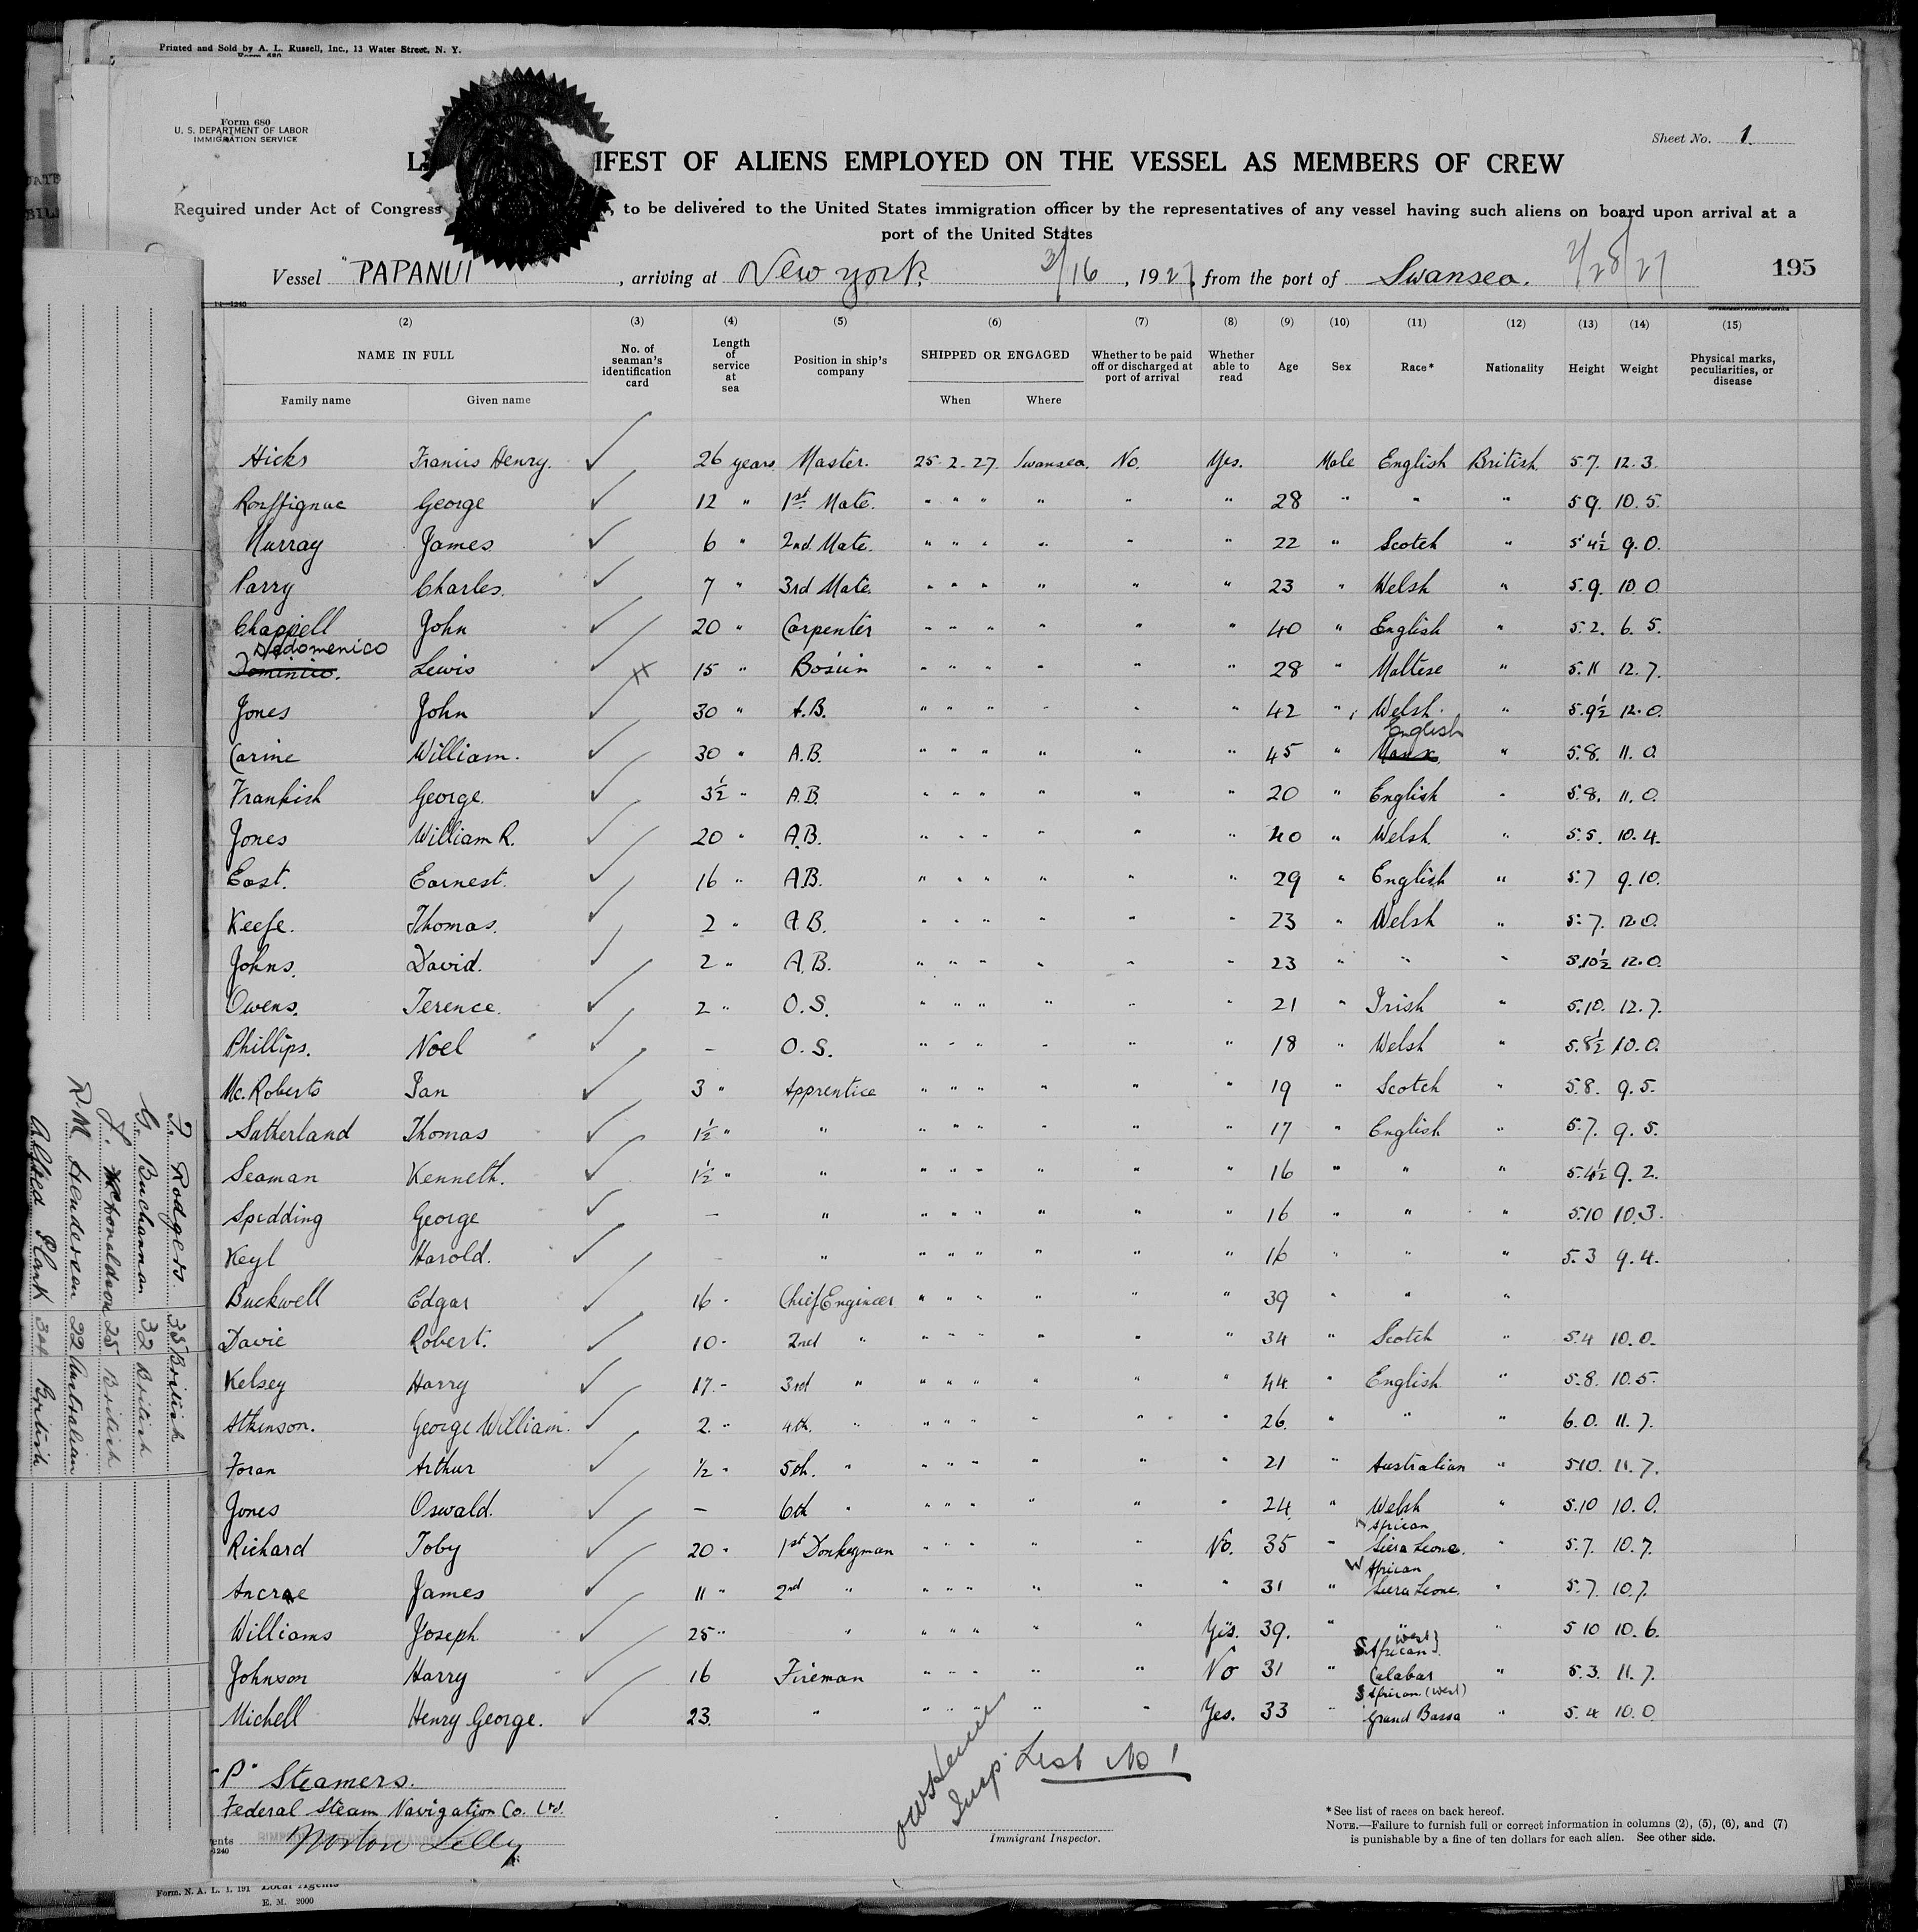 Printed and Sold by A. L. Russell, Inc., 13 Water Street, N. Y.
Form 680
Form 680
U. S. DEPARTMENT OF LABOR
IMMIGRATION SERVICE
Sheet No. 1.
IFEST OF ALIENS EMPLOYED ON THE VESSEL AS MEMBERS OF CREW
Required under Act of Congress , to be delivered to the United States immigration officer by the representatives of any vessel having such aliens on board upon arrival at a
port of the United States
Vessel "PAPANUI , arriving at New York. 3/16 , 1927, from the port of Swansea. 2/28/27 195
14-1240
(2) (3) (4) (5) (6) (7) (8) (9) (10) (11) (12) (13) (14) (15)
NAME IN FULL No. of seaman's identification card Length of service at sea Position in ship's company SHIPPED OR ENGAGED Whether to be paid off or discharged at port of arrival Whether able to read Age Sex Race* Nationality Height Weight Physical marks, peculiarities, or disease
Family name Given name When Where
Hicks Francis Henry. ✓ 26 years Master. 25.2.27 Swansea. No. Yes. Male English British 5.7. 12.3.
George ✓ 12 " 1st Mate. " " " " " " 28 " " " 5 9. 10.5.
Murray James ✓ 6 " 2nd Mate. " " " " " " 22 " Scotch " 5'4½ 9.0.
Parry Charles. ✓ 7 " 3rd Mate. " " " " " " 23 " Welsh " 5.9. 10.0
Chappell John ✓ 20 " Carpenter " " " " " " 40 " English " 5.2. 6.5.
Dedomenico
Dominico. Lewis ✓ 15 " Bosun " " " " " " 28 " Maltese 5.11 12.7.
Jones John ✓ 30 " A.B. " " " " " " 42 " Welsh. " 5.9½ 12.0.
English
Carine William. ✓ 30 " A.B. " " " " " " 45 " Manx " 5.8. 11.0
Frankish George. ✓ 3½ " A.B. " " " " " " 20 " English " 5.8. 11.0.
Jones William R. ✓ 20 " A.B. " " " " " " 40 " Welsh. " 5.5. 10.4.
East. Earnest. ✓ 16 " A.B. " " " " " " 29 " English " 5.7 9.10.
Keefe. Thomas. ✓ 2 " A.B. " " " " " " 23 " Welsh " 5.7. 12.0.
Johns. David. ✓ 2 " A.B. " " " " " " 23 " " " 5.10½ 12.0.
Owens. Terence. ✓ 2 " O.S. " " " " " " 21 " Irish " 5.10. 12.7.
Phillips. Noel ✓ - O.S. " " " " " " 18 " Welsh " 5.8½ 10.0.
Mc.Roberts Ian ✓ 3 " Apprentice " " " " " " 19 " Scotch " 5.8. 9.5.
Sutherland Thomas ✓ 1½ " " " " " " " " 17 " English " 5.7. 9.5.
Seaman Kenneth. ✓ 1½ " " " " " " " " 16 " " " 5.4½ 9.2.
Spedding George ✓ - " " " " " " " 16 " " " 5.10 10.3.
Keyl Harold. ✓ - " " " " " " " 16 " " " 5.3 9.4.
Buckwell Edgar ✓ 16 - Chief Engineer " " " " " " 39 " " "
Davie Robert. ✓ 10 - 2nd " " " " " " " 34 " Scotch " 5.4 10.0.
Kelsey Harry ✓ 17.- 3rd " " " " " " " 44 " English " 5.8. 10.5.
Atkinson. George William. ✓ 2. " 4th. " " " " " " " 26. " " " 6.0. 11.7.
Foran Arthur ✓ ½ " 5th. " " " " " " " 21 " Australian " 5.10. 11.7.
Jones Oswald. ✓ - 6th " " " " " " " 24 " Welsh " 5.10 10.0.
W African
Richard Toby ✓ 20 " 1st Donkeyman " " " " " No. 35 " Siera Leone. " 5.7. 10.7.
W African
Ancrae James ✓ 11 " 2nd " " " " " " " 31 " Siera Leone. " 5.7. 10.7.
Williams Joseph ✓ 25 " " " " " " " Yes. 39. " " " 5 10 10.6.
African West
Johnson Harry ✓ 16 Fireman " " " " " No 31 " Calabar " 5.3. 11.7.
African (West)
Michell Henry George. ✓ 23. " " " " " " Yes. 33 " Grand Bassa " 5.4 10.0
T. Rodgers 35 British
G. Buchannan 32 British
J. Mc Donaldson 25 British
R.M. Henderson 22 Australian
Alfred Plank 30 British
"P" Steamers.
Federal Steam Navigation Co. Ltd.
Norton Lilly
Insp. List No 1
Immigrant Inspector.
*See list of races on back hereof.
NOTE.—Failure to furnish full or correct information in columns (2), (5), (6), and (7)
is punishable by a fine of ten dollars for each alien. See other side.
Form. N. A. L. 1. 191 Local Agents
E. M. 2000